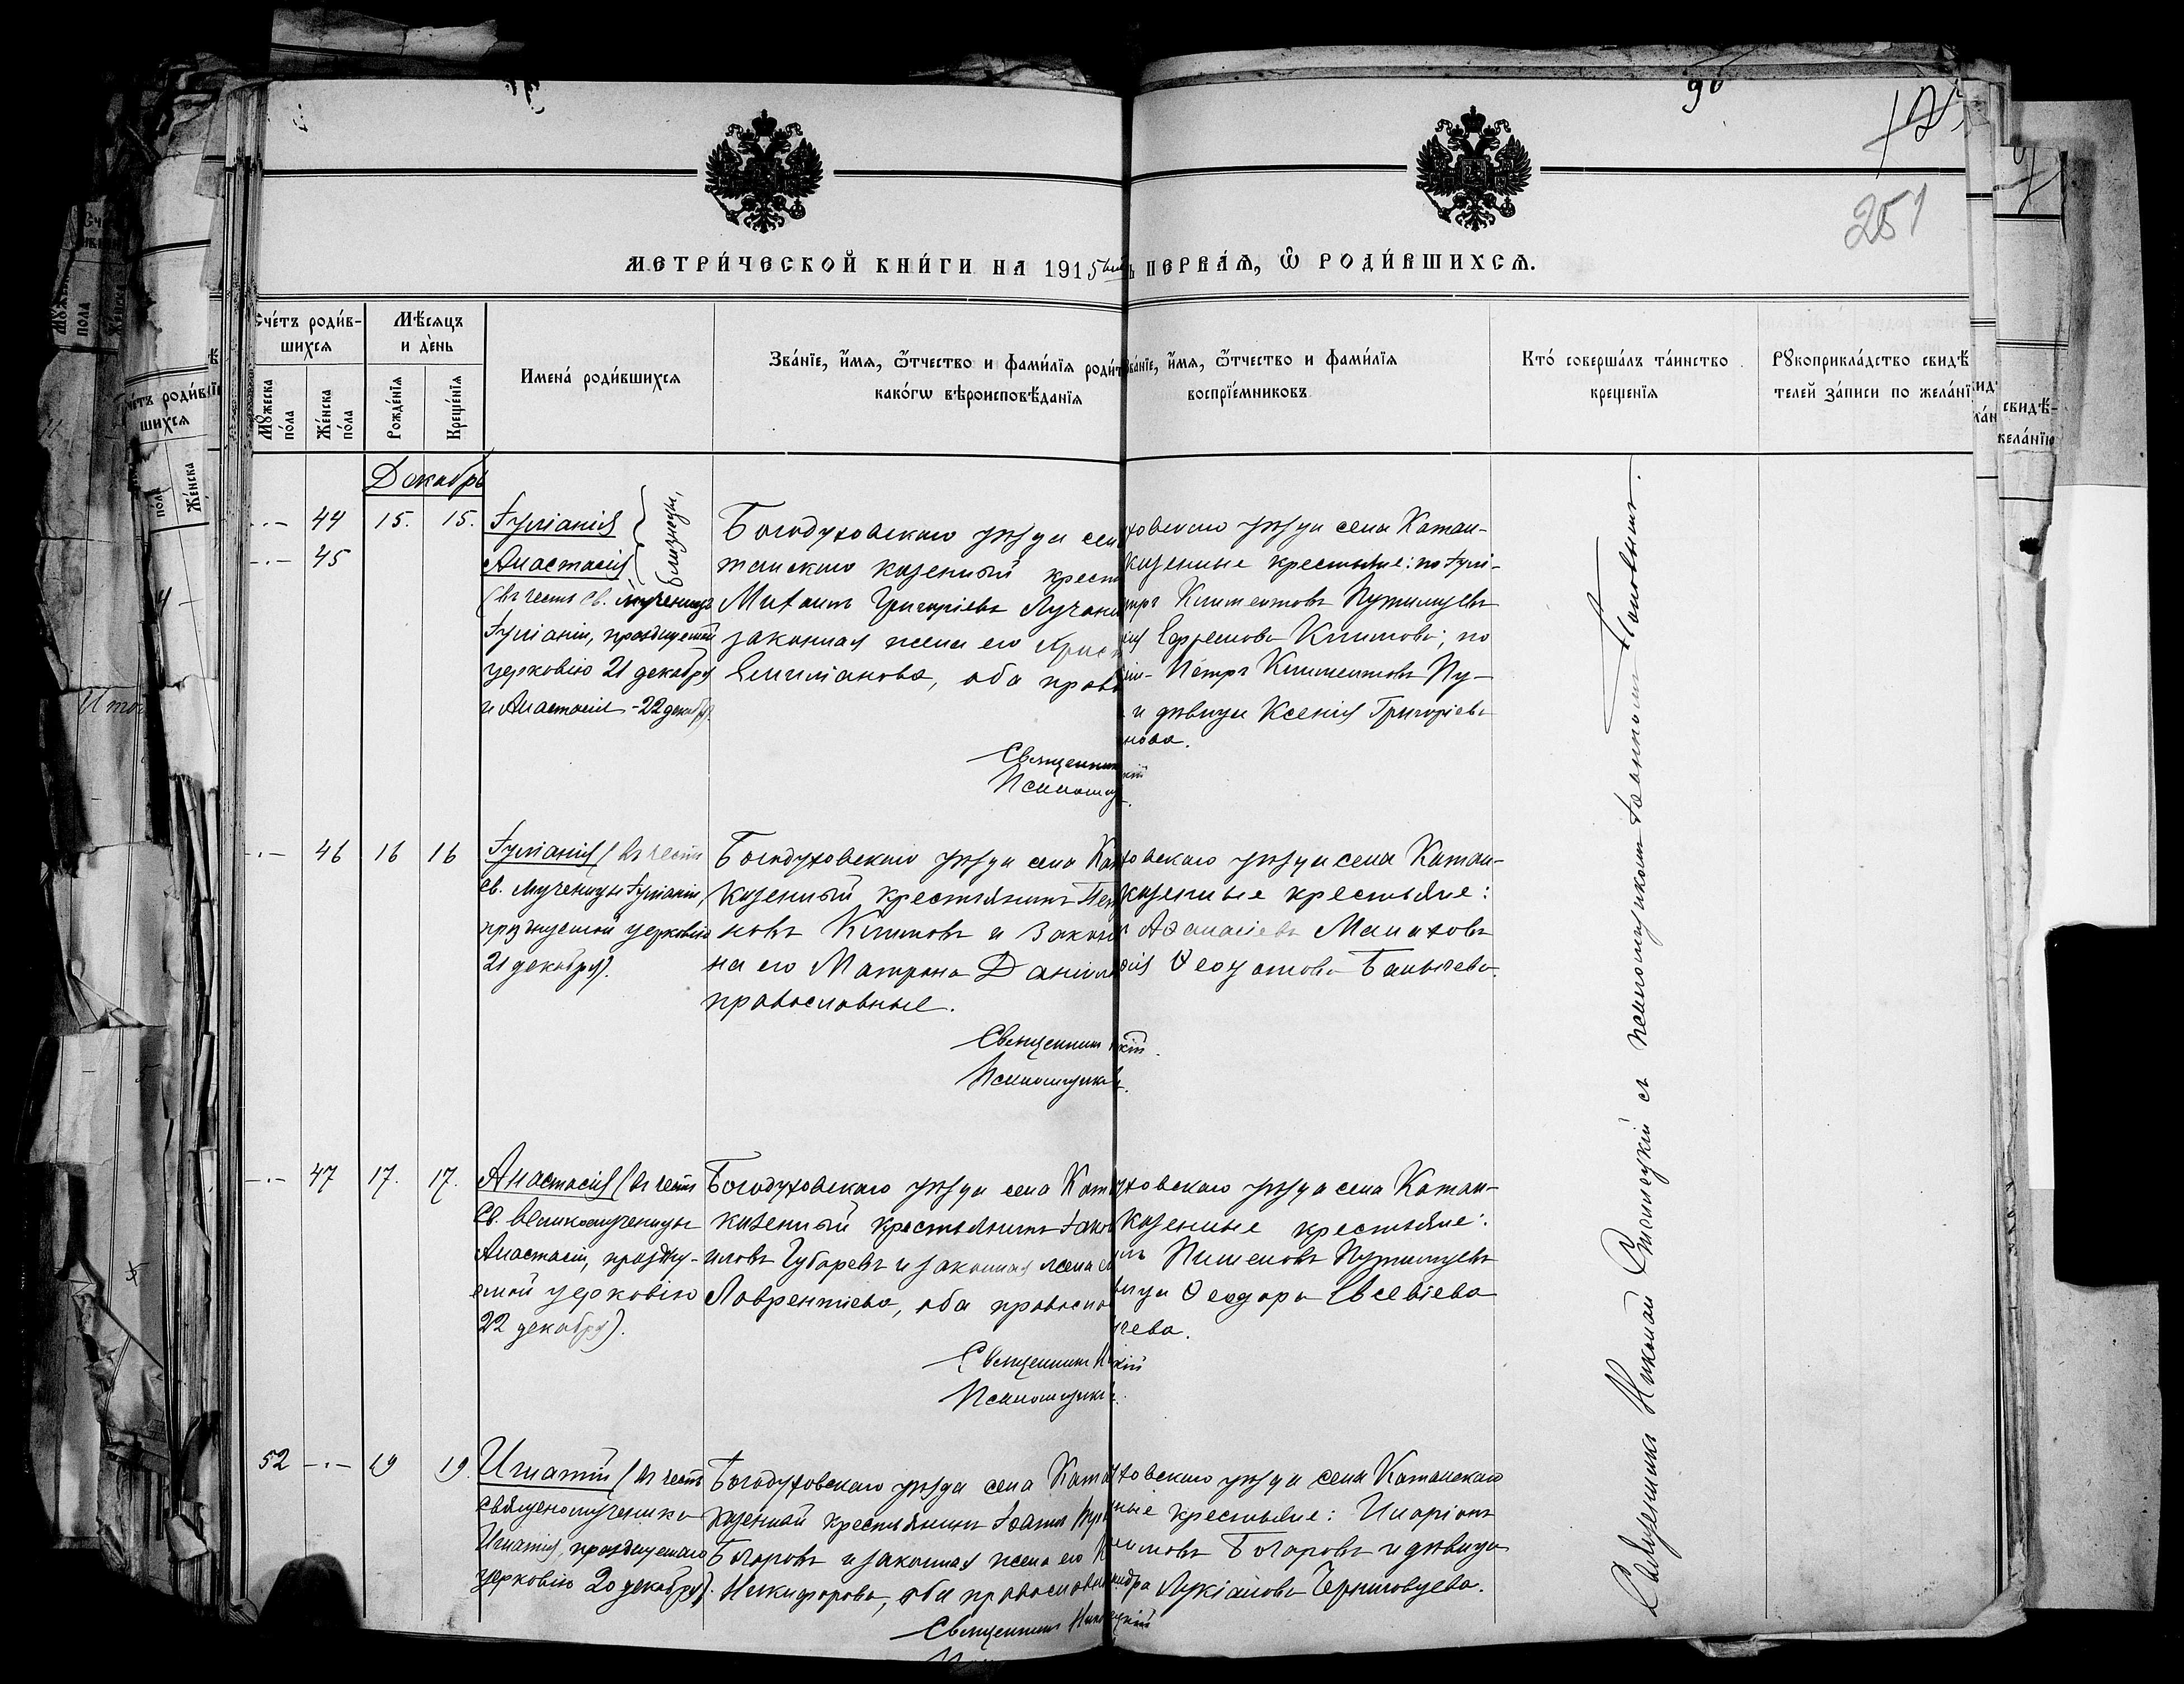 90
251
МЕТРИ́ЧЕСКОЙ КНИ́ГИ НА 1915
ПЕРВА́Я, Ѽ РОДИ́ВШИХСЯ.
Сче́тъ роди́в-
шихся
Мꙋжеска
по́ла
Же́нска
по́ла
Мѣ́сяцъ
и де́нь
Рожде́нїя
Креще́нїя
Имена́ роди́вшихся
Зва́нїе, и́мя, ѻ҆́тчество и фами́лїя роди́т
како́гѡ вѣроисповѣ́данїя
ва́нїе, и́мя, ѻ҆́тчество и фами́лїя
воспрїе́мниковъ
Кто́ соверша́лъ та́инство
крещенїя
Рꙋкоприкла́дство свидѣ́
телей за́писи по жела́нї
Декабрь
44 15. 15. Іуліанія
45
Анастасія
близнецы,
(въ честь св. мученицъ
Іуліаніи, празднуемой
церковію 21 декабря
и Анастасіи - 22 декабря.
Богодуховскаго уѣзда сел
танскаго казенный крест
Михаилъ Григоріевъ Лучани
законная жена его Хрис
Емиліанова, оба право
Священник
Псаломщ
ховскаго уѣзда села Катан-
казенные крестьяне: по Іулі-
тръ Климентовъ Путилцевъ
ія Ефремова Климова; по
іи - Петръ Климентовъ Пу-
и дѣвица Ксенія Григоріева
нова.
кій
46 16 16 Іуліанія (въ честь
св. мученицы Іуліаніи,
празднуемой церковію
21 декабря).
Богодуховскаго уѣзда села Кат
казенный крестьянинъ
новъ Климовъ и закон
на его Матрона Даніил
православные.
Священник
Псаломщик
ховскаго уѣзда села Катан-
казенные крестьяне:
Аѳанасіевъ Малаховъ
Ѳеодотова
кій.
47 17. 17. Анастасія (въ честь
св. великомученицы
Анастасіи, праздну-
емой церковію
22 декабря).
Богодуховскаго уѣзда села Ката
казенный крестьянинъ Іаков
иловъ Губаревъ и законная жена е
Лаврентіева, оба правосла
Священник Н
Псаломщик
ховскаго уѣзда села Катан-
казенные крестьяне:
Пименовъ Путилцевъ
вица Ѳеодора Евсевіева
чева.
кій
52 19 19. Игнатій (въ честь
священомученика
Игнатія, празднуемаго
церковію 20 декабря).
Богодуховскаго уѣзда села Ката
казенный крестьянинъ Іоаннъ
Бочаровъ и законная жена его
Никифорова, оба православн
Священник Ник
ховскаго уѣзда села Катанскаго
ные крестьяне: Иларіонъ
Бочаровъ и дѣвица
ндра Лукіанова Черниговцева.
цкій
Священникъ Николай съ псаломщикомъ Іоанномъ Поповымъ.